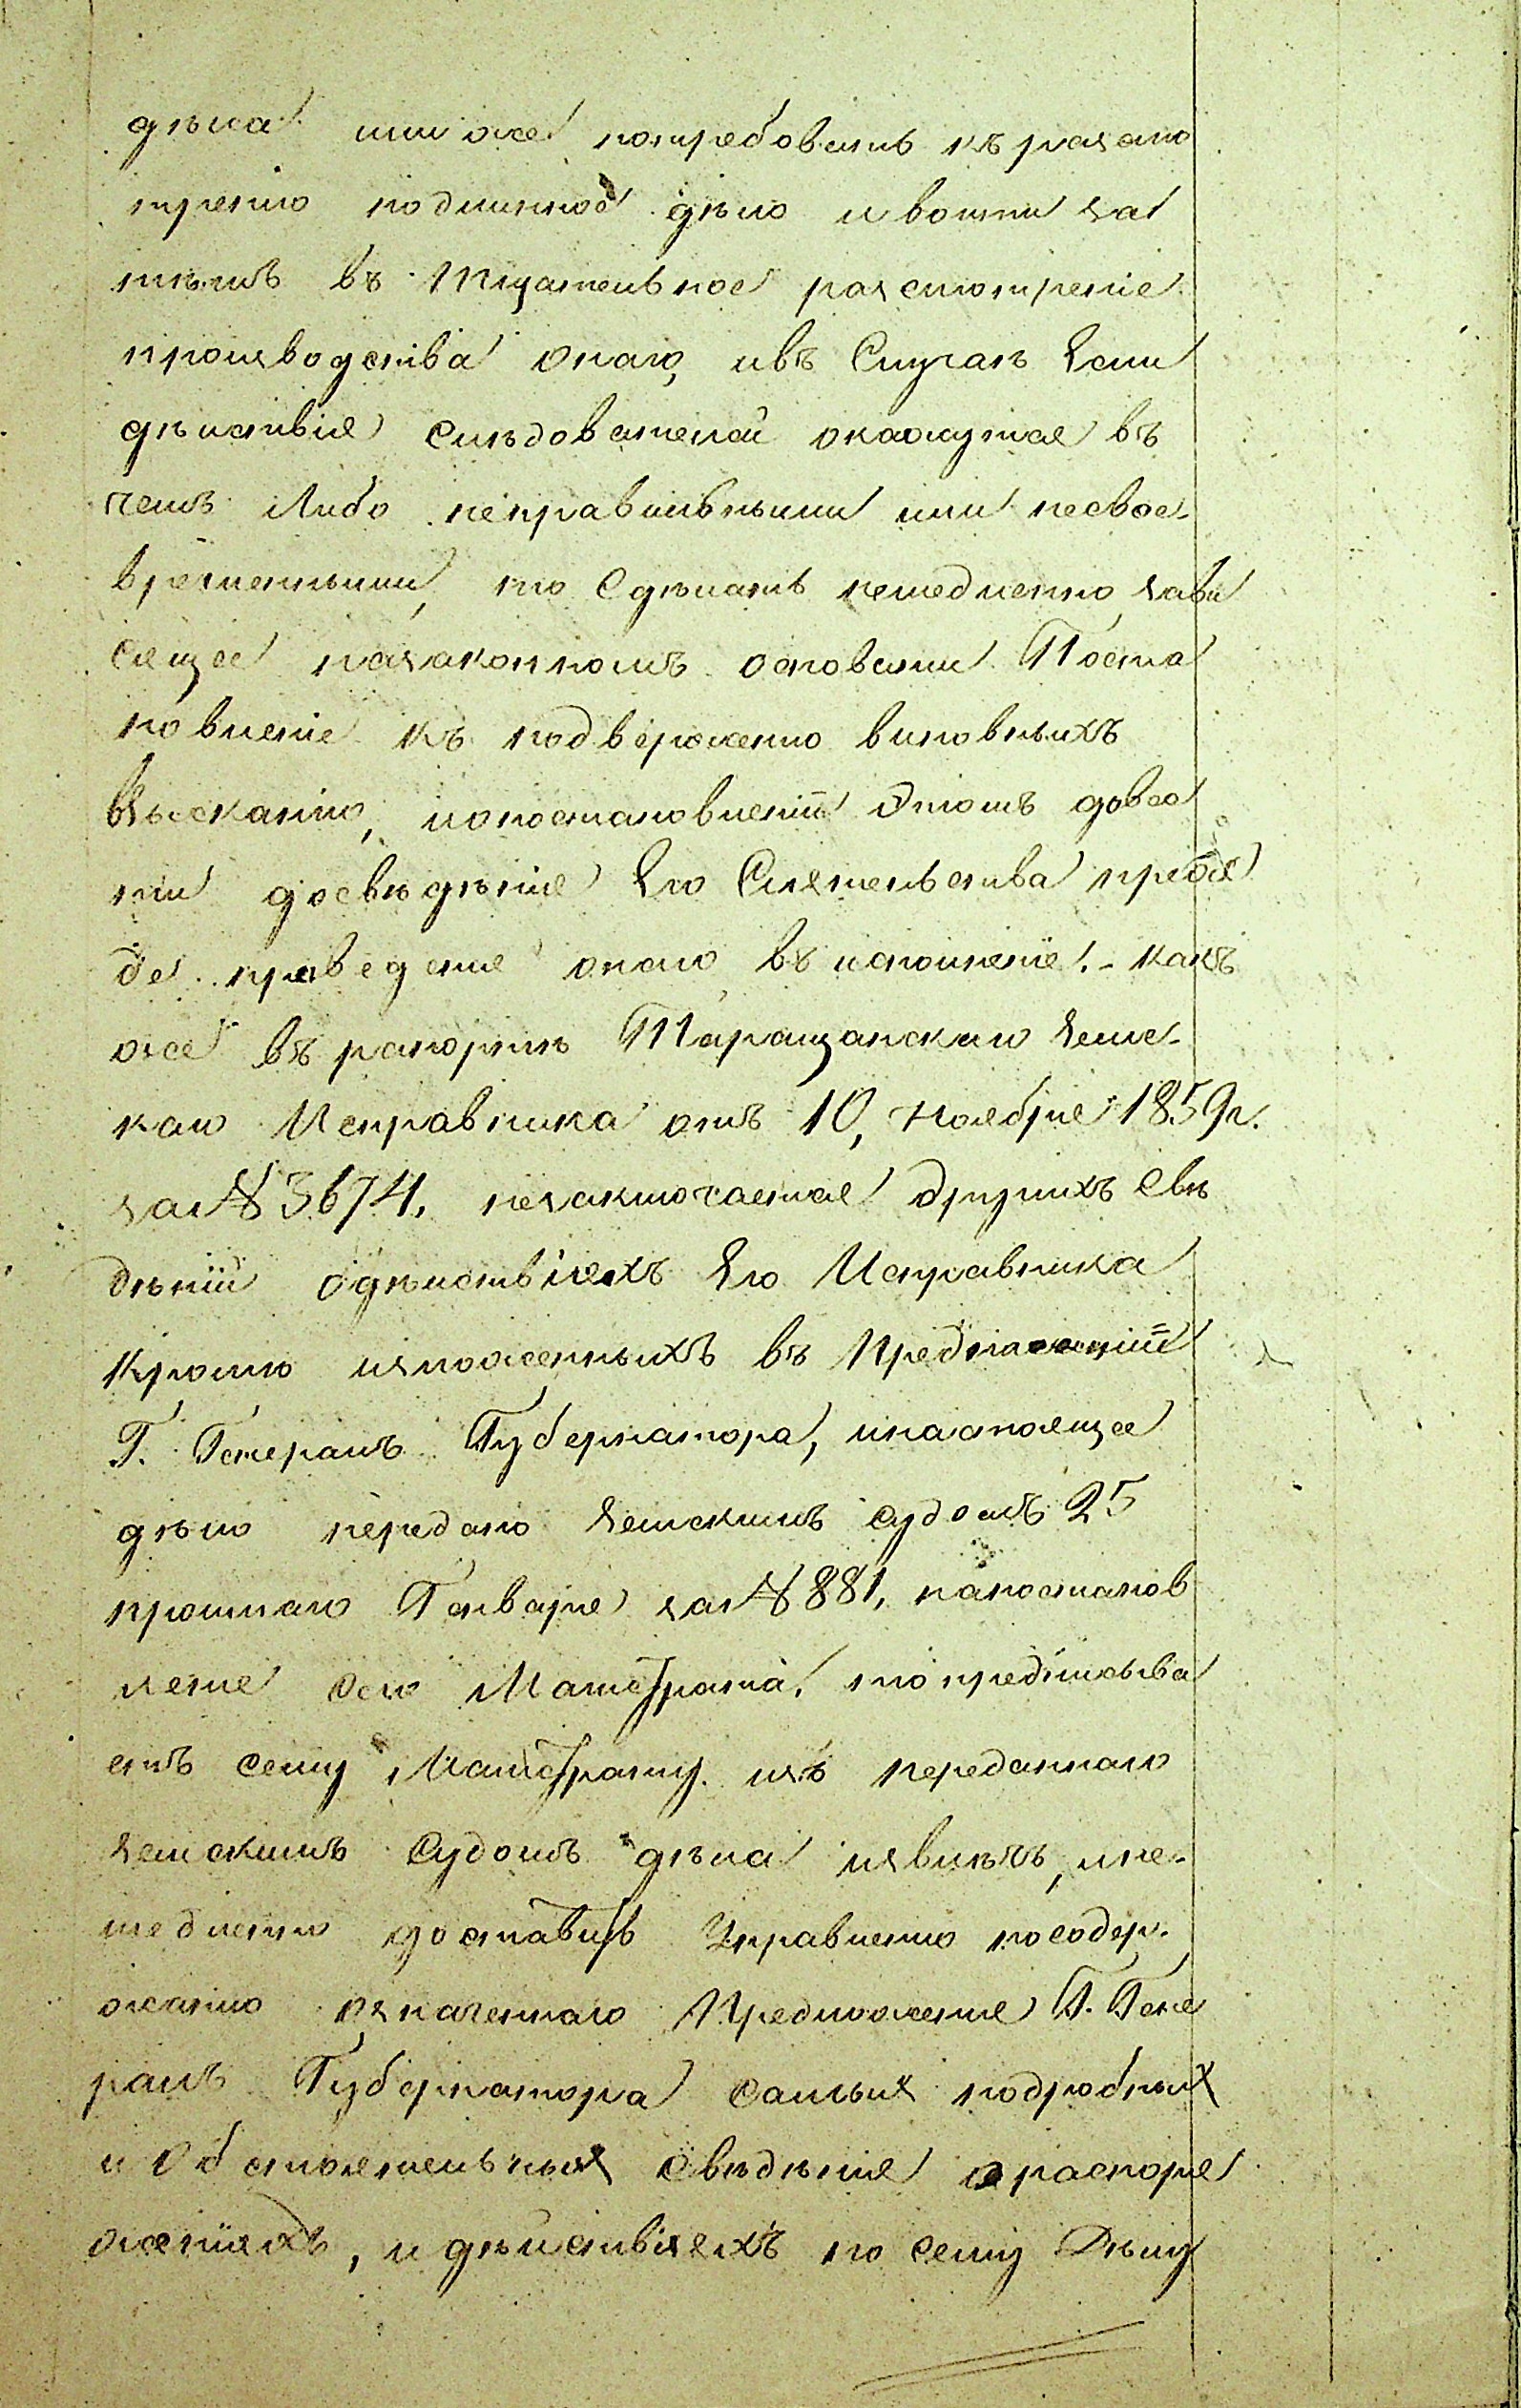 дѣла или же потребовать къ разсмо
трѣнію подлинное дѣло и войти за
тѣмъ въ Тщательное разсмотреніе
производства онаго, ивъ Случаѣ Если
дѣйствія Слѣдователей окажутся въ
чемъ Либо неправильными или несвое-
временными, то Сдѣлать немедленно зави
сящее назаконномъ основании Поста
новленіе къ подверженію виновныхъ
взысканію, ипостановленіи Этомъ довес
ти досвѣдѣнія Его Сіятельства преж
де приведенія онаго въ исполненіе. - какъ
же въ рапортѣ Таращанскаго Земс-
каго Исправника отъ 10, Ноября 1859 г.
за № 3674, незаключается другихъ Свѣ
дѣній одѣйствіяхъ Его Исправника
Кромѣ изложенныхъ въ Предложеніи
Г. Генералъ Губернатора, инастоящее
дѣло передано Земскимъ Судомъ 25
прошлаго Генваря за № 881, напостанов
леніе сего Магистрата, то предписыва
етъ сему Магистрату изъ переданнаго
Земскимъ Судомъ дѣла извлѣчь, и не-
медленно доставить Управленію посодер-
жанію означеннаго Предложенія Г. Гене
ралъ Губернатора самыя подробныя
и Обстоятельныя свѣдѣнія о распоря
женіяхъ, и дѣйствіяхъ по сему Дѣлу